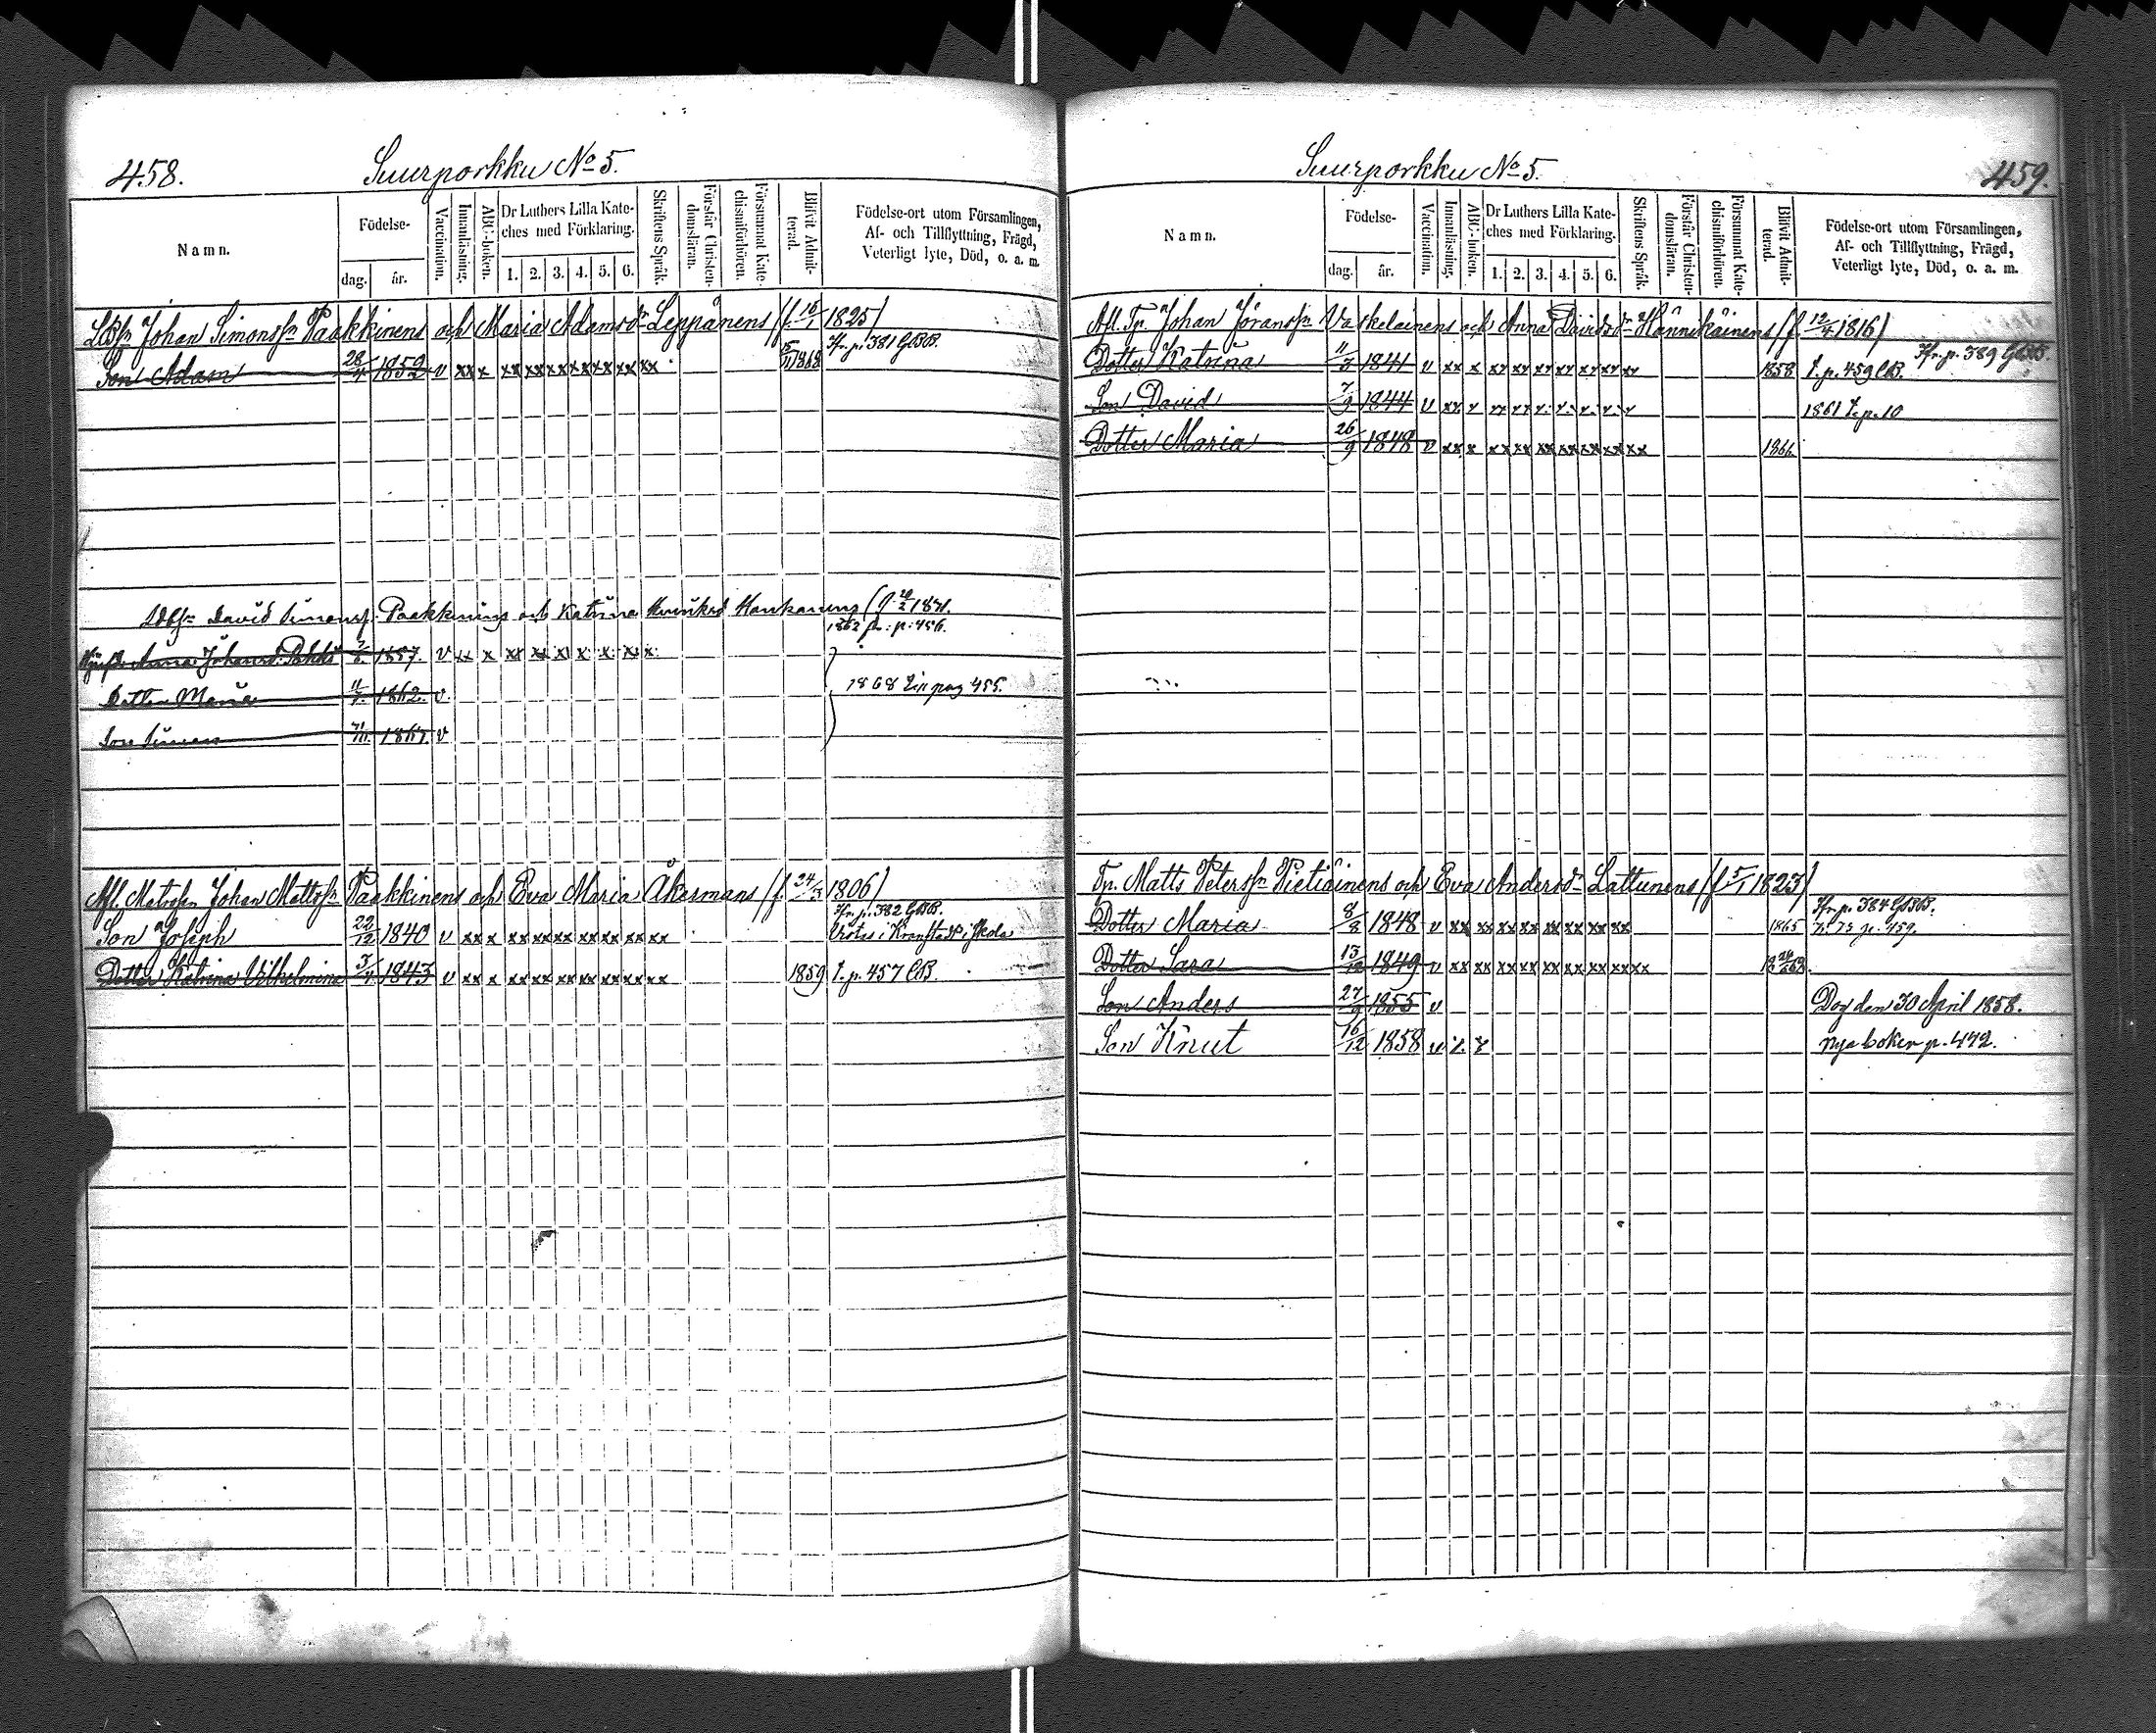 458.
Suurporkku No 5.
Namn.
Födelse-
dag.
år.
Vaccination.
Innanläsning.
ABC-boken.
Dr Luthers Lilla Kate-
ches med Förklaring.
1. 2. 3. 4. 5. 6.
Skriftens Språk.
Förstår Christen-
domsläran.
Försummat Kate-
chismiförhören.
Blifvit Admit-
terad.
Födelse-ort utom Församlingen,
Af- och Tillflyttning, Frägd,
Veterligt lyte, Död, o. a. m.
Johan Simonssn Paakkinens och Maria Adamsdr Leppänens (f. 1825)
Jfr. p. 381 GBB.
Son Adam 28/4 1852 v xx x xx xx xx xx xx xx xx 1868
David Simonss. Paakkinens och Katrina Hankanens
1862 fr. p. 456.
Anna Johansd. 1857. v xx x
Dotter Maria 1862. v
1868 pag 455.
Son Simon v
Afl. Matrosen Johan Mattssn Paakkinens och Eva Maria Åkermans (f. 24/3 1806)
Jfr. p. 382 GBB.
Son Joseph 22/12 1840 v xx x xx xx xx xx xx xx xx Vistas i Kronstadt i Skola
Dotter Katrina Vilhelmina 3/4 1843 v xx x xx xx xx xx xx xx xx 1859 T. p. 457 CB.
Suurporkku No 5.
459.
Namn.
Födelse-
dag.
år.
Vaccination.
Innanläsning.
ABC-boken.
Dr Luthers Lilla Kate-
ches med Förklaring.
1. 2. 3. 4. 5. 6.
Skriftens Språk.
Förstår Christen-
domsläran.
Försummat Kate-
chismiförhören.
Blifvit Admit-
terad.
Födelse-ort utom Församlingen,
Af- och Tillflyttning, Frägd,
Veterligt lyte, Död, o. a. m.
Afl. Tp. Johan Jöranssn Vaskelainens och Anna Davidsdr Hännikäinens (f. 12/4 1816)
Jfr. p. 389 GBB.
Dotter Katrina 11/3 1841 v xx x xx xx xx xx xx xx xx 1858 T. p. 459 CB.
Son David 7/9 1844 v 1861 T. p. 10
Dotter Maria 26/9 1848 v xx x xx xx xx xx xx xx xx 1866
Tp. Matts Peterssn Pietiäinens och Eva Andersdr Lattunens (f. 5/1 1823)
Jfr. p. 384 GBB.
Dotter Maria 8/8 1848 v xx xx xx xx xx xx xx xx 1865
Dotter Sara 13/12 1849 v xx xx xx xx xx xx xx xx xx
Son Anders 27/9 1855 v Dog den 30 April 1858.
Son Knut 16/12 1858 v nya boken p. 472.